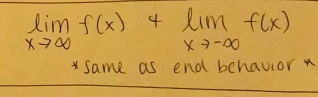 lim f(x) & lim f(x)
x→∞ x→-∞
*same as end behavior*